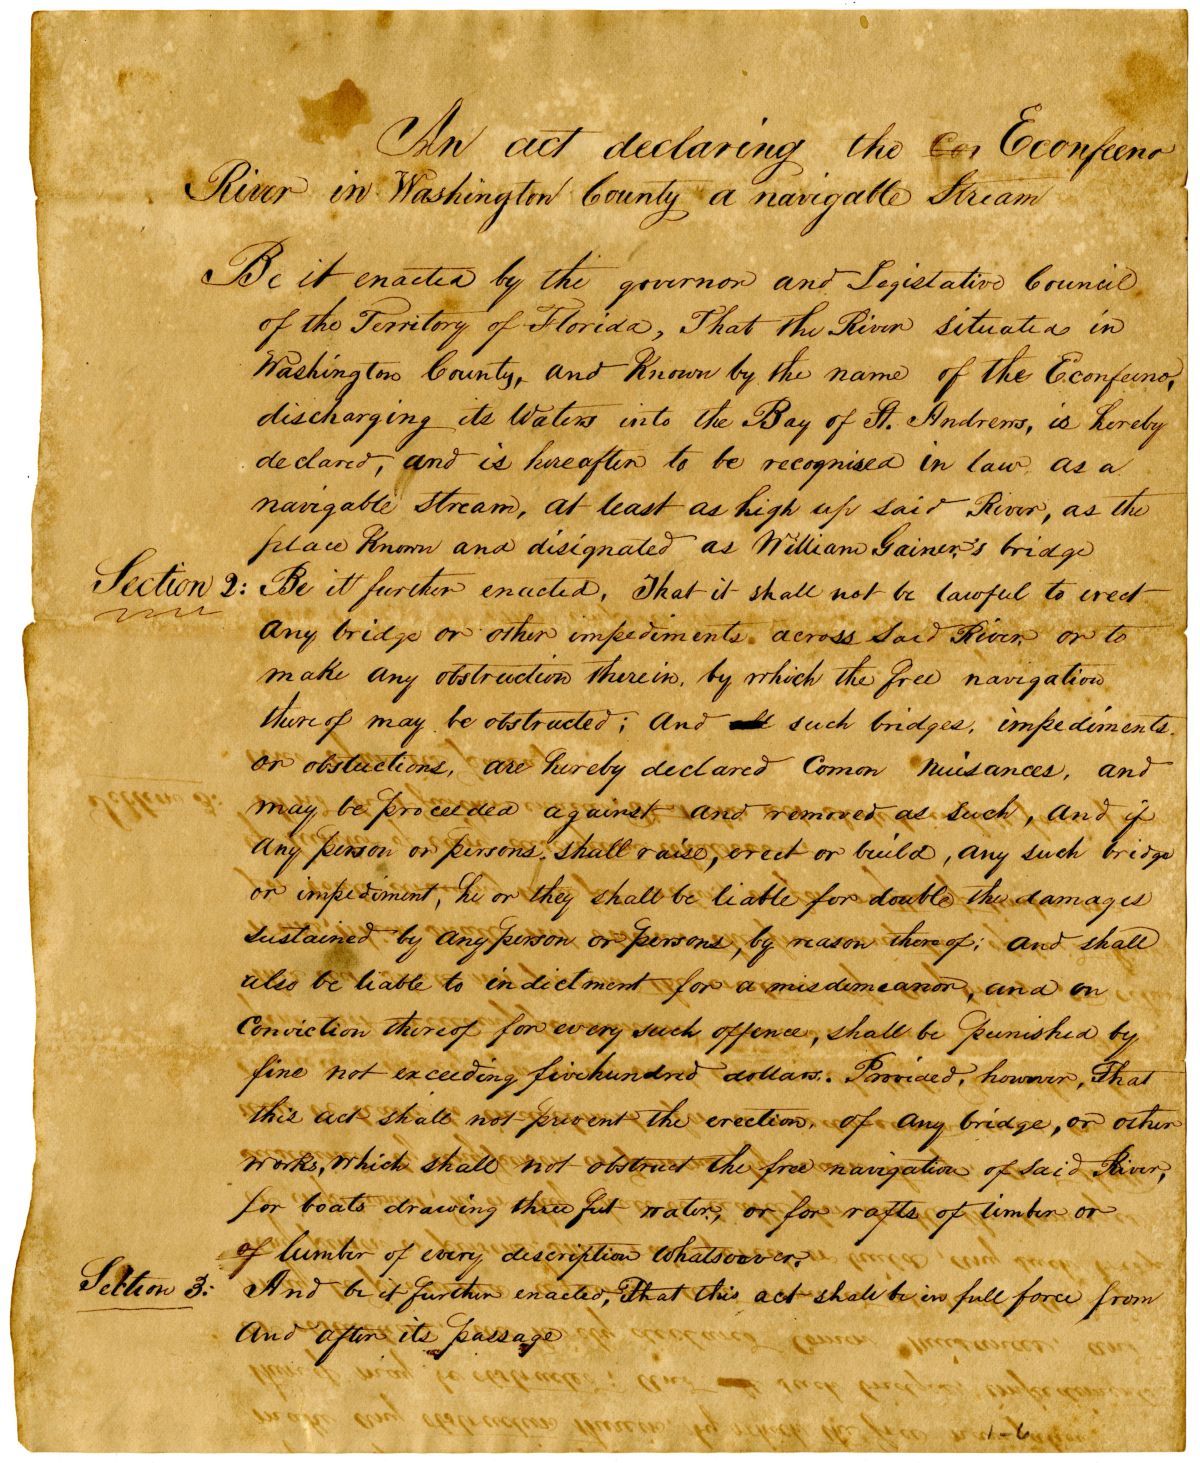 An act declaring the Econfeeno
River in Washington County a navigable Stream
Be it enacted by the governor and Legislative Council
of the Territory of Florida, That the River situated in
Washington County, and Known by the name of the Econfeeno,
discharging its Waters into the Bay of St. Andrews, is hereby
declared, and is hereafter to be recognised in law as a
navigable stream, at least as high up said River, as the
place Known and disignated as William Gainer,s bridge
Section 2: Be it further enacted, That it shall not be lawful to erect
any bridge or other impediments across said River or to
make any obstruction therein, by which the free navigation
thereof may be obstructed; and such bridges, impediments
or obstuctions, are hereby declared Comon Nuisances, and
may be proceeded against and removed as such, and if
any person or persons shall raise, erect or build, any such bridge
or impediment, he or they shall be liable for double the damages
sustained by any person or persons, by reason thereof; and shall
also be liable to indictment for a misdemeanor, and on
Conviction thereof for every such offence, shall be punished by
fine not exceeding fivehundred dollars. Provided, however, That
this act shall not prevent the erection, of any bridge, or other
works, which shall not obstruct the free navigation of said River,
for boats drawing three feet water, or for rafts of timber or
of lumber of every description whatsoever.
Section 3: And be it further enacted, That this act shall be in full force from
and after its passage